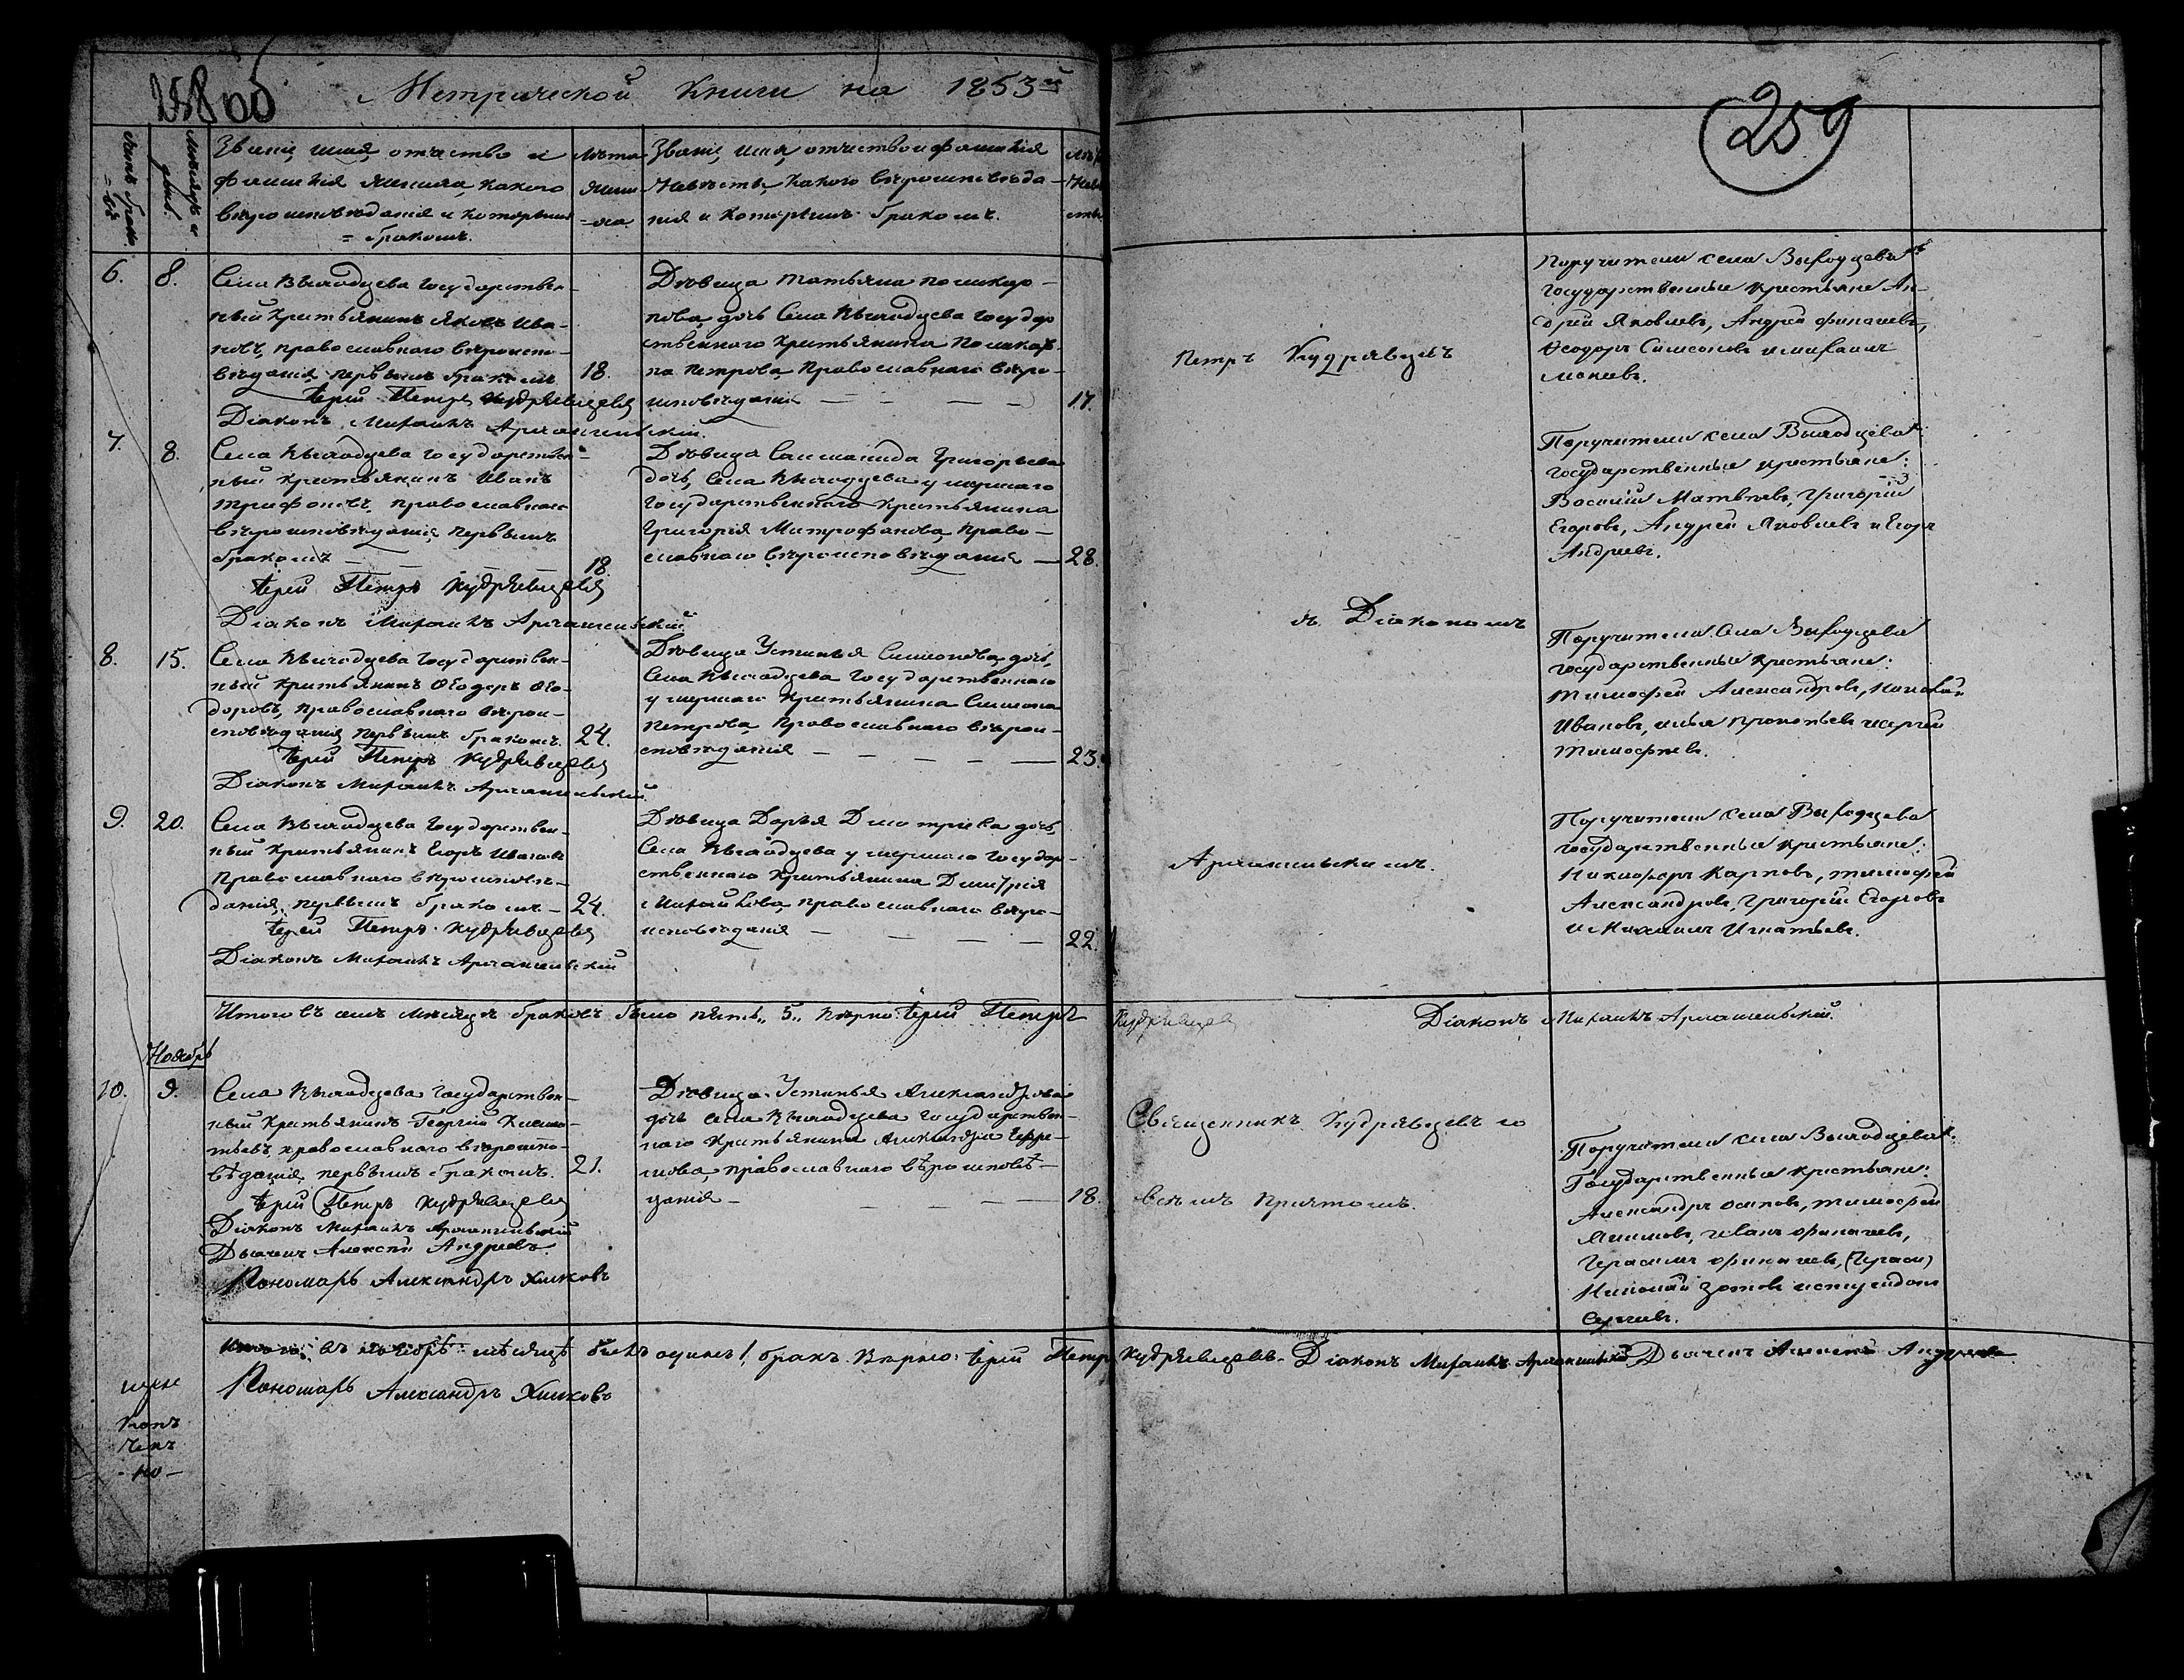 Метрической Книги на 1853й
259
Счетъ брако=въ
Мѣсяцъ и день
Званіе, имя, отчество и
фамилія жениха, какого
вѣроисповѣданія и которымъ
= бракомъ.
Лѣта
жени
=ха.
Званіе, имя, отчество и фамилія
невѣсты, какого вѣроисповѣда-
нія и которымъ бракомъ.
6.
8.
Села Выходцева Государствен-
ный Крестьянинъ Яковъ Ива-
новъ, православнаго вѣроиспо-
вѣданія, первымъ бракомъ
18.
Іерей Петръ Кудрявцевъ
Діаконъ Михаилъ Архангельскій.
Дѣвица Татьяна Поликар-
пова дочь Села Выходцева Государ
ственнаго Крестьянина Поликар-
па Петрова, Православнаго вѣро-
исповѣданія
17.
Петръ Кудрявцевъ
Поручители села Выходцева
Государственные Крестьяне Ан-
дрей Яковлевъ, Андрей
Ѳеодоръ Симеоновъ и Михаилъ
7.
8.
Села Выходцева Государствен-
ный Крестьянинъ Иванъ
Трифоновъ, православнаго
вѣроисповѣданія, первымъ
бракомъ
18.
Іерей Петръ Кудрявцевъ
Діаконъ Михаилъ Архангельскій
Дѣвица Саломанида Григорьева
дочь, Села Выходцева умершаго
Государственнаго Крестьянина
Григорія Митрофанова, Право-
славнаго вѣроисповѣданія
28.
съ Діакономъ
Поручители села Выходцева
Государственные крестьяне:
Василій Матвѣевъ, Григорій
Егоровъ, Андрей Яковлевъ и Егоръ
Андреевъ.
8.
15.
Села Выходцева Государствен-
ный Крестьянинъ Ѳеодоръ Ѳео-
доровъ, православнаго вѣрои-
сповѣданія первымъ бракомъ.
24.
Іерей Петръ Кудрявцевъ
Діаконъ Михаилъ Архангельскій.
Дѣвица Устинья Симеонова дочь,
Села Выходцева Государственнаго
умершаго Крестьянина Симеона
Петрова, Православнаго вѣрои-
сповѣданія
23.
Поручители Села Выходцева
Государственные Крестьяне:
Тимофей Александровъ,
Ивановъ, Илья Прокопьевъ и Сергей
Тимофеевъ.
9.
20.
Села Выходцева Государствен-
ный Крестьянинъ Егоръ Ивановъ
Православнаго вѣроисповѣ-
данія, первымъ бракомъ
24.
Іерей Петръ Кудрявцевъ
Діаконъ Михаилъ Архангельскій
Дѣвица Дарья Дмитріева дочь,
Села Выходцева умершаго Государ-
ственнаго Крестьянина Димитрія
Михайлова, православнаго вѣро-
исповѣданія
22.
Архангельскимъ.
Поручители Села Выходцева
Государственные Крестьяне:
Никифоръ Карповъ, Тимофей
Александровъ, Григорій Егоровъ
и Максимъ Игнатьевъ.
Итого въ семъ мѣсяцѣ браковъ было пять „5„ Вѣрно: Іерей Петръ Кудрявцевъ Діаконъ Михаилъ Архангельскій.
Ноябрь
10.
9.
Села Выходцева Государствен-
ный Крестьянинъ Георгій
православнаго вѣроиспо-
вѣданія, первымъ бракомъ.
21.
Іерей Петръ Кудрявцевъ
Діаконъ Михаилъ Архангельскій
Дьячекъ Алексѣй Андреевъ.
Пономарь Александръ Хилковъ
Дѣвица Устинья Александрова
дочь села Выходцева Государствен-
наго Крестьянина Александра
православнаго вѣроисповѣ-
данія
18.
Священникъ Кудрявцевъ со
всемъ Причтомъ.
Поручители села Выходцева
Государственные крестьяне:
Александръ Осиповъ, Тимофей
Иванъ
Герасимъ
Николай Зотовъ
Сергеевъ.
въ Ноябрѣ мѣсяцѣ былъ одинъ 1, бракъ. Вѣрно: Іерей Петръ Кудрявцевъ. Діаконъ Михаилъ Архангельскій, Дьячекъ Алексѣй Андреевъ.
Пономарь Александръ Хилковъ